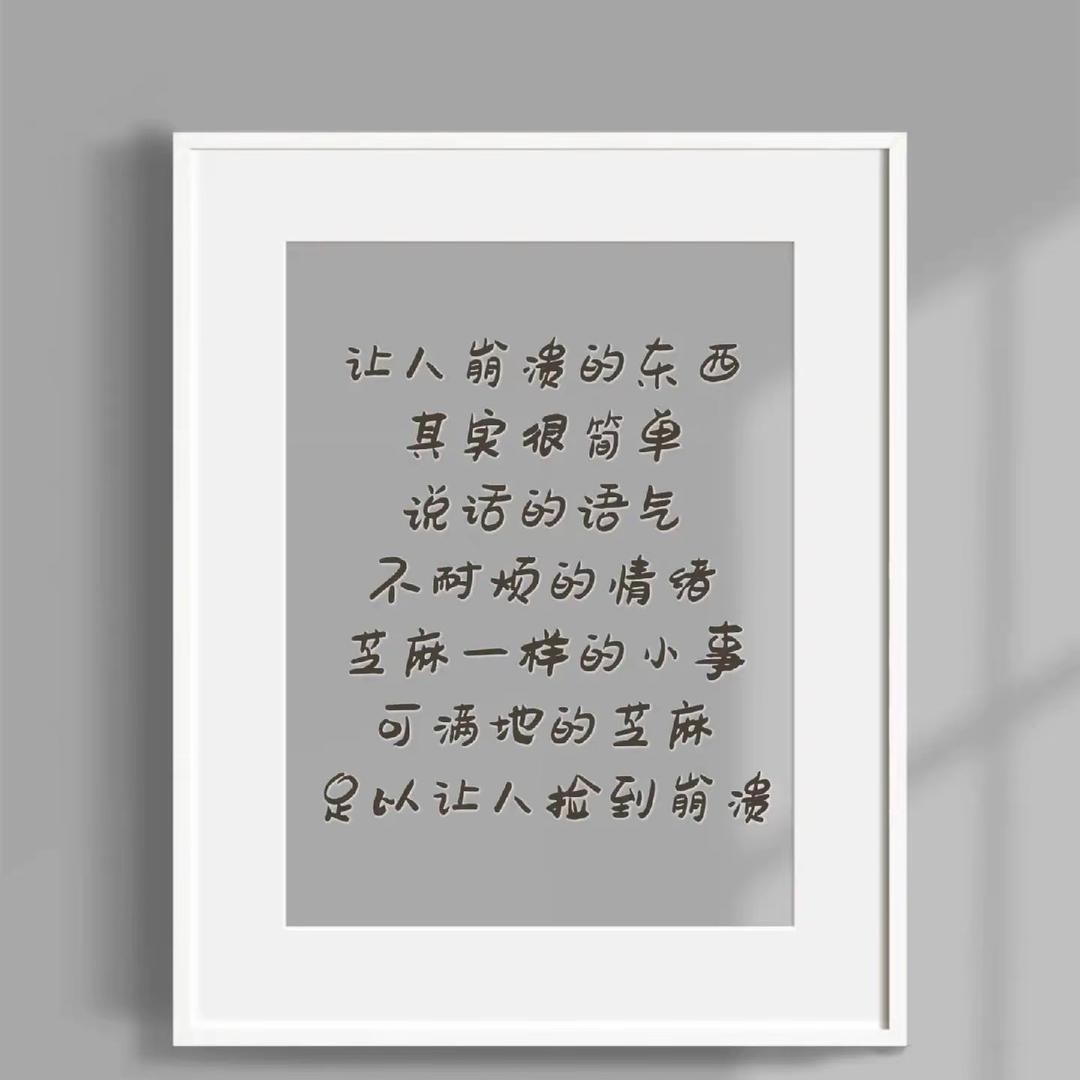 让人崩溃的东西
其实很简单
说话的语气
不耐烦的情绪
芝麻一样的小事
可满地的芝麻
足以让人捡到崩溃